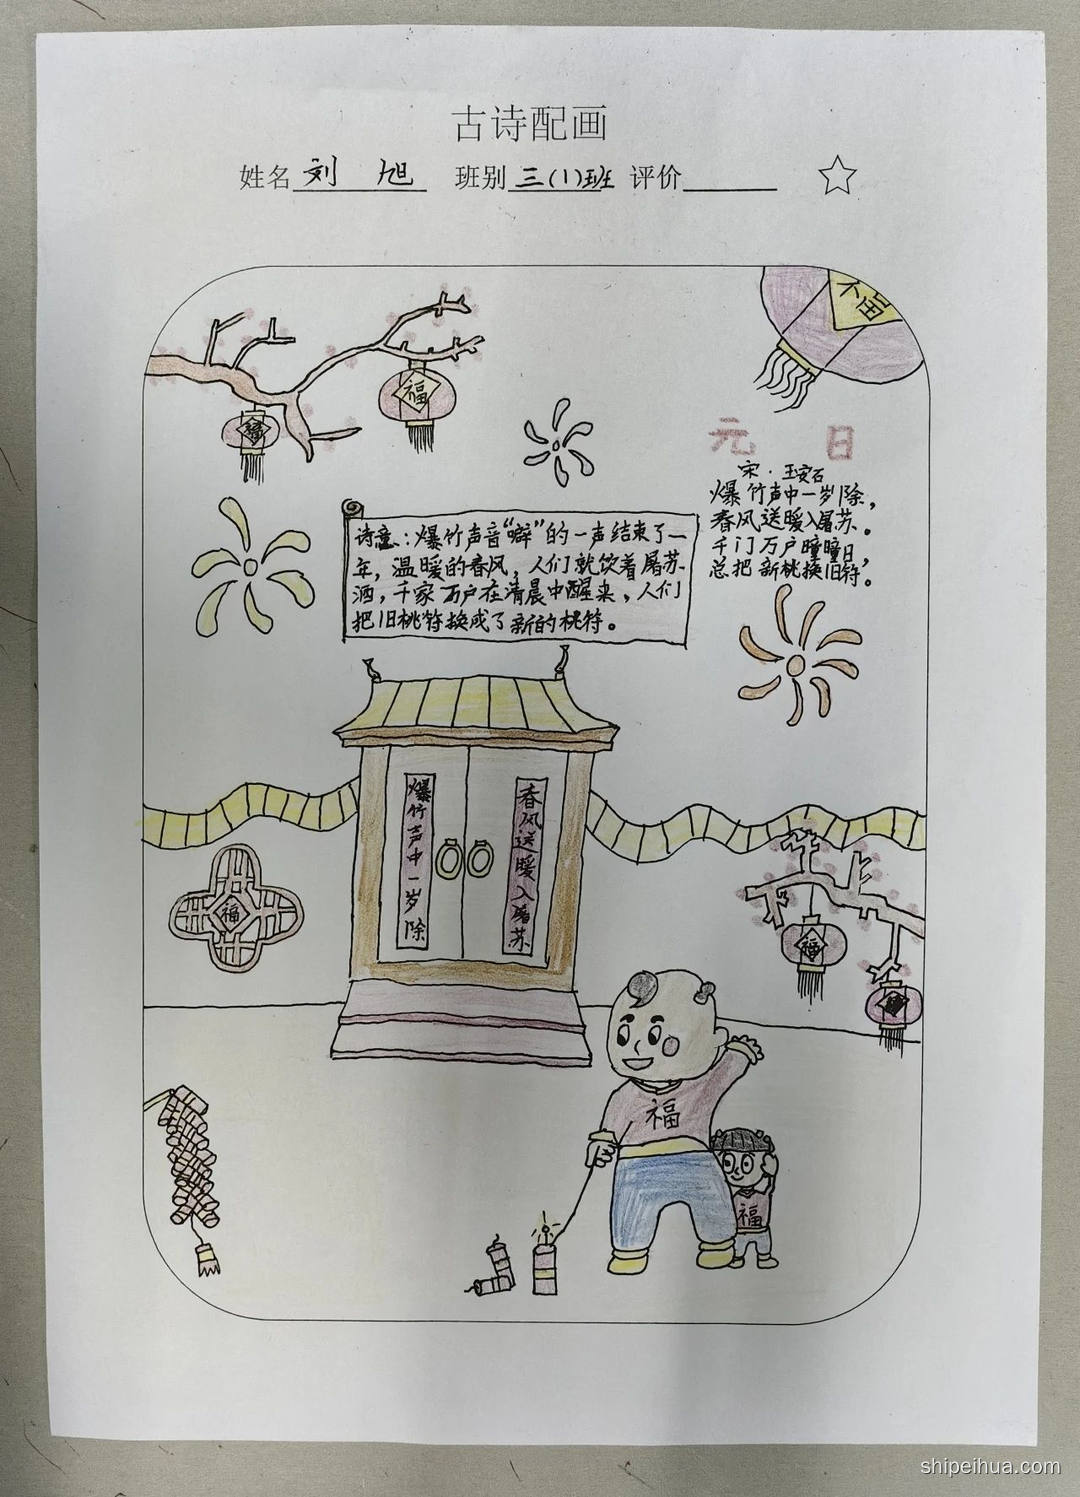 古诗配画
姓名 刘 旭 班别 三(1)班 评价
福
福
福
元 日
宋·王安石
爆竹声中一岁除，
春风送暖入屠苏。
千门万户曈曈日，
总把新桃换旧符。
诗意：爆竹声音“噼”的一声结束了一
年，温暖的春风，人们就饮着屠苏
酒，千家万户在清晨中醒来，人们
把旧桃符换成了新的桃符。
爆竹声中一岁除
春风送暖入屠苏
福
福
福
福
shipeihua.com